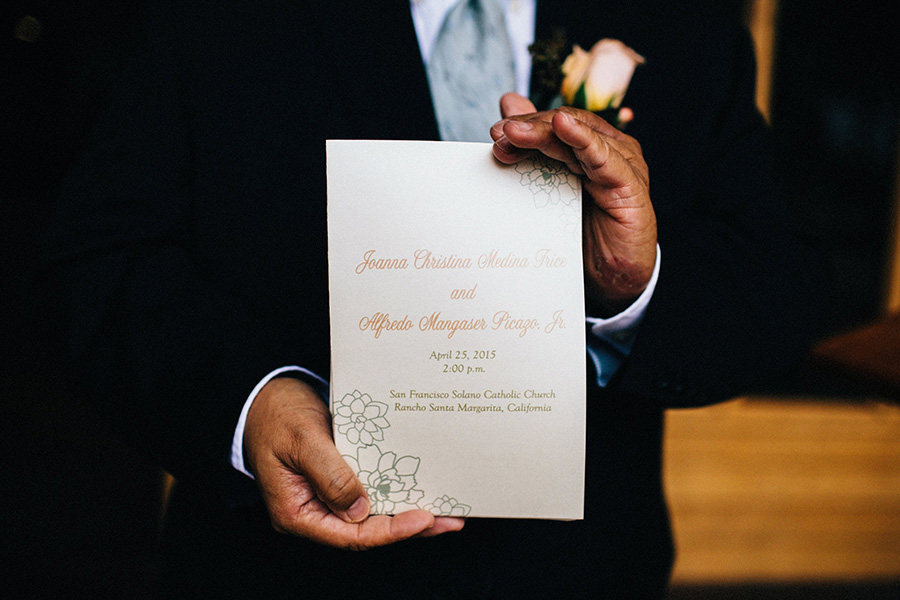 Joanna Christina Medina Frice
and
Alfredo Mangaser Picazo, Jr.
April 25, 2015
2:00 p.m.
San Francisco Solano Catholic Church
Rancho Santa Margarita, California